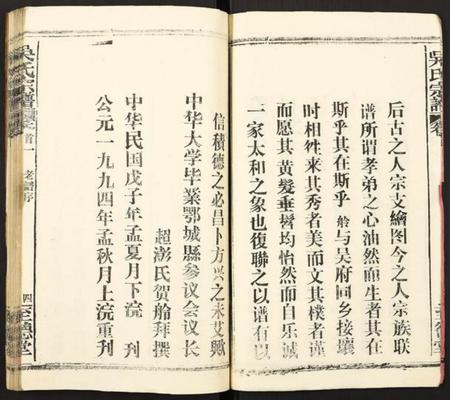 吴氏宗谱
后古之人宗支繪图今之人宗族联
谱所谓孝弟之心油然而生者其在
斯乎其在斯乎 舲与吴府同乡接壤
时相徃来其秀者美而文其樸者谨
而愿其黄髮垂髫均怡然而自乐诚
一家太和之象也復聯之以谱有以
信積德之必昌卜方兴之未艾歟
中华大学毕業鄂城縣参议会议长
超澎氏贺舲拜撰
中华民国戊子年孟夏月下浣 刊
公元一九九四年孟秋月上浣重刊
吳氏宗譜
卷首
老譜序
四
至德堂
至德堂